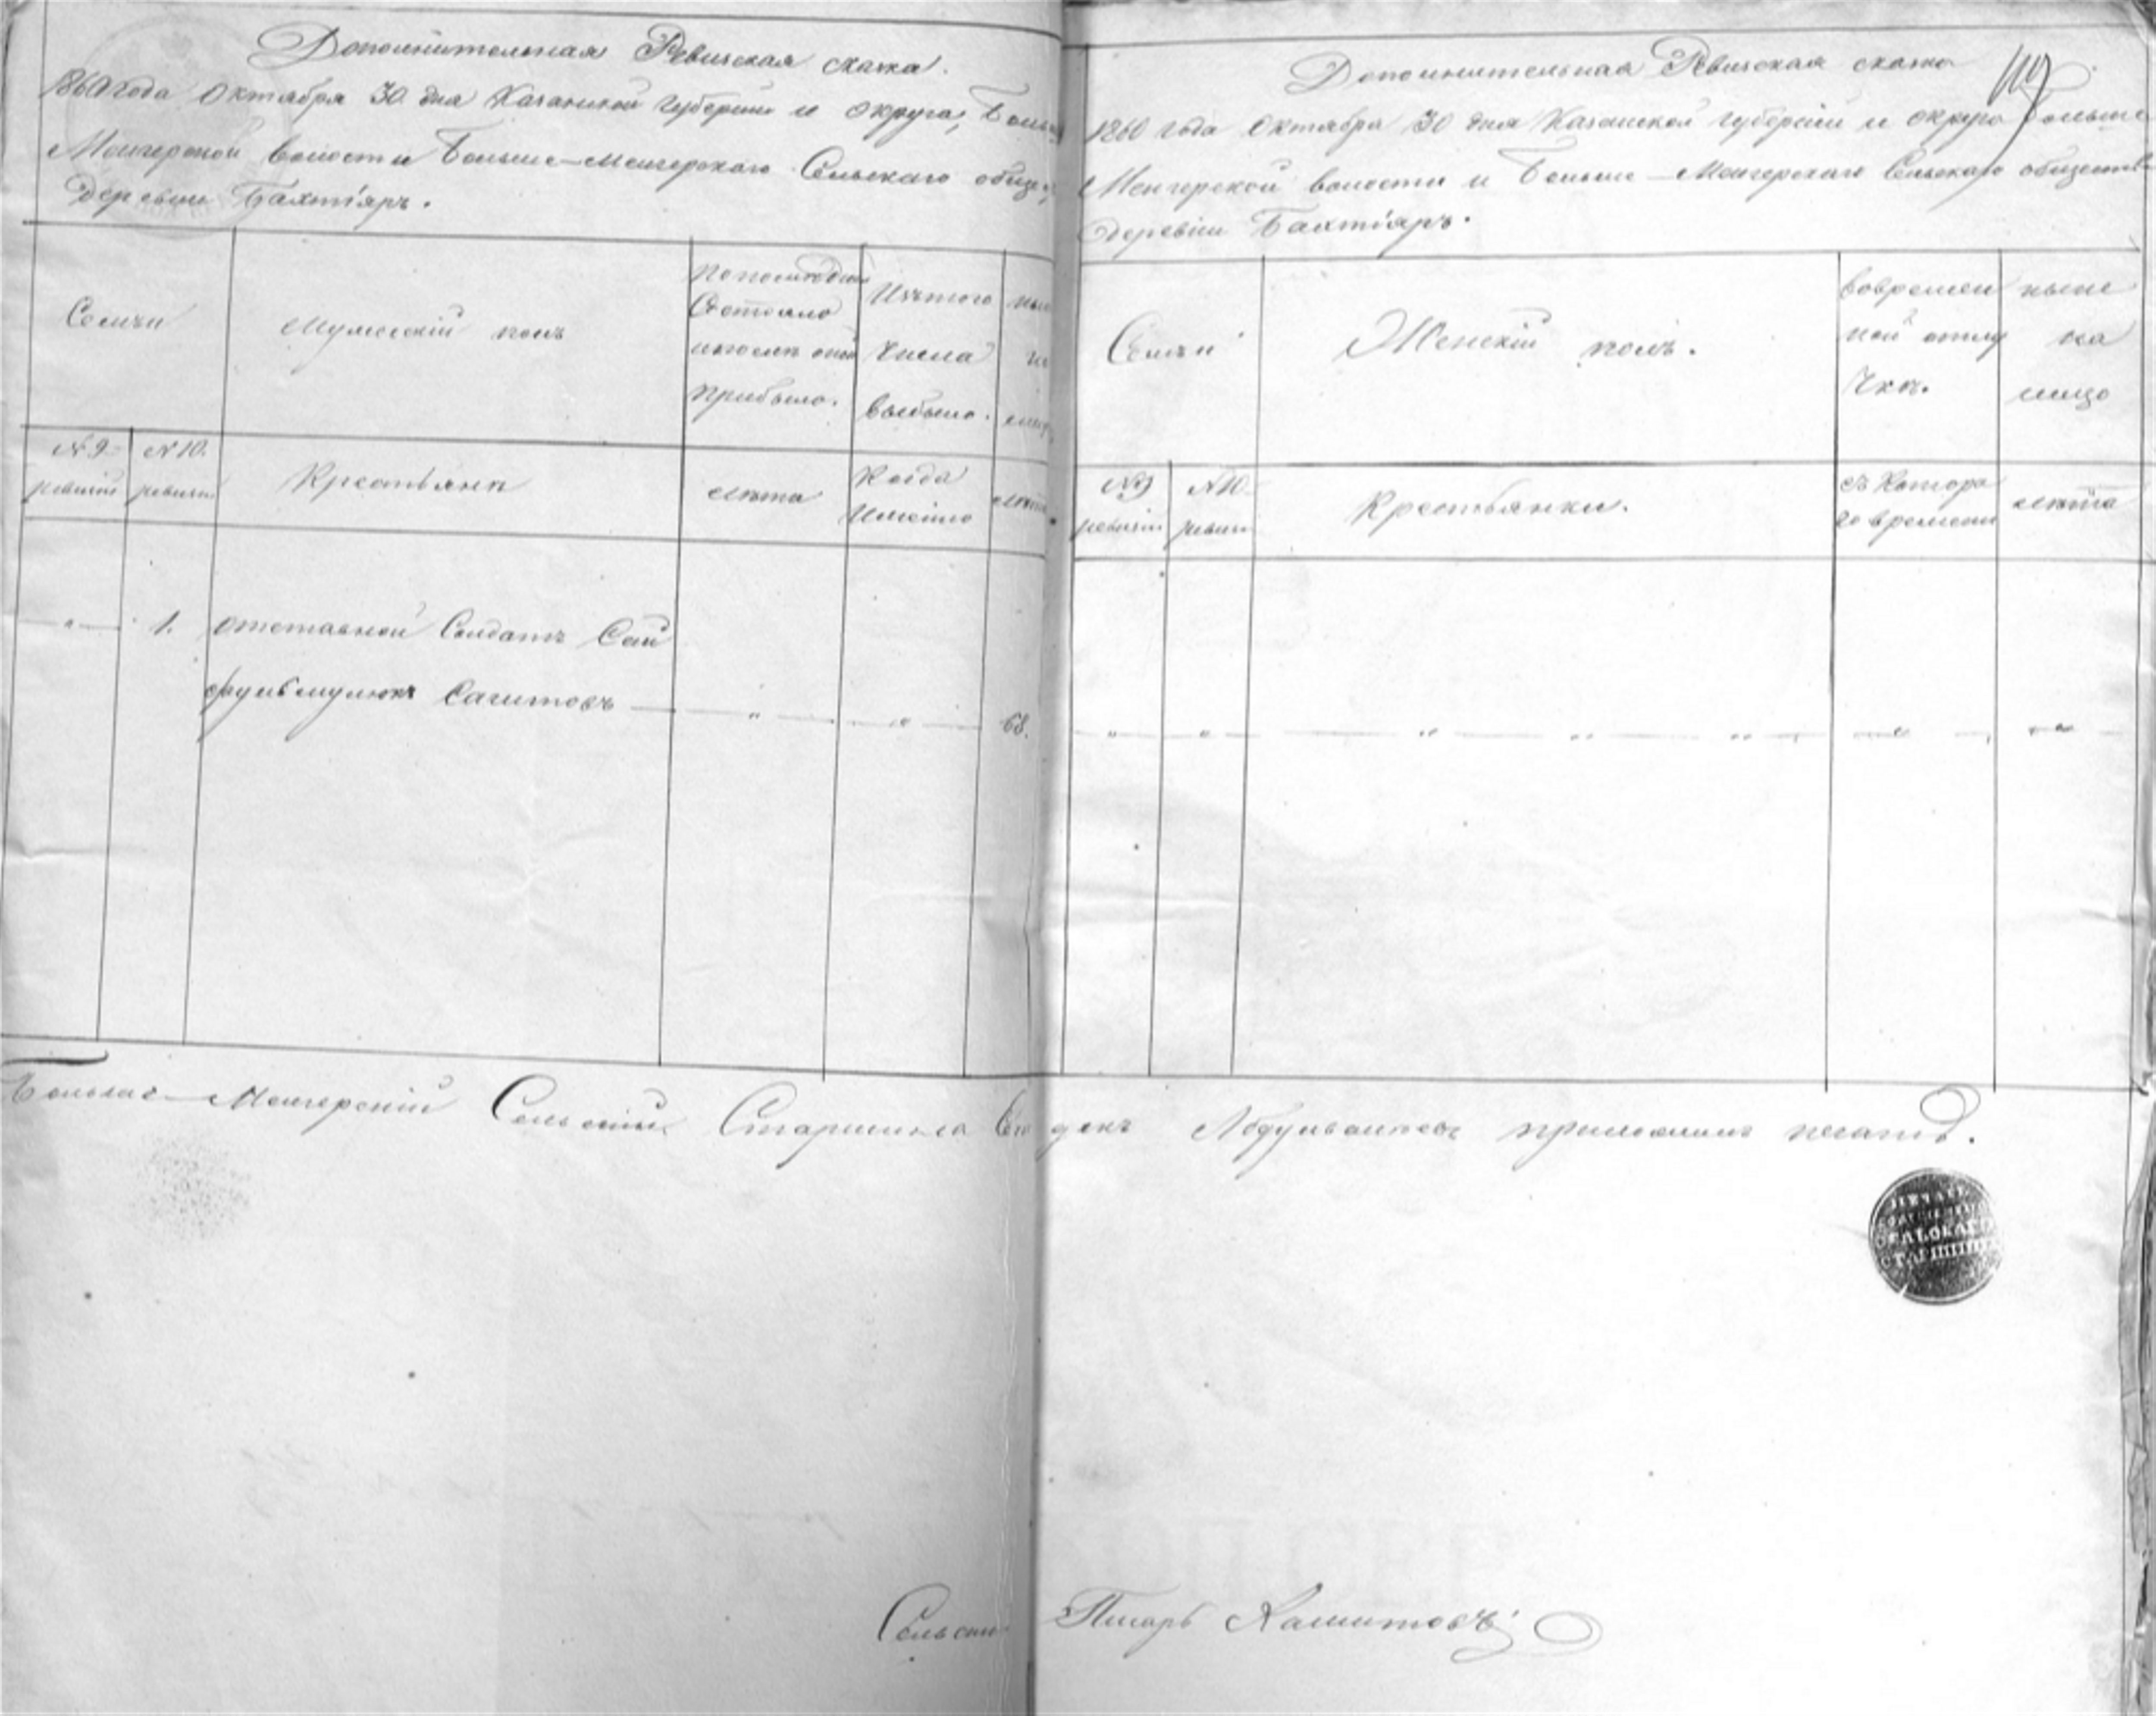 Дополнительная Ревизская сказка.
1860 года Октября 30 дня Казанской губернии и округа, Больше
Менгерской волости Больше-Менгерскаго Сельскаго обще
деревни Бахтіяръ.
Семьи
Мужескій полъ
Состояло
прибыло.
Изъ того
числа
выбыло.
№ 9
ревизіи
№ 10.
ревизіи
Крестьяне
лѣта
Когда
Именно
лѣта
1.
отставной Солдатъ Сей
фульмулюкъ Сагитовъ
68.
Дополнительная Ревизская сказка
1860 года Октября 30 дня Казанской губерніи и округа Больше
Менгерской волости и Больше-Менгерскаго Сельскаго обществ
деревни Бахтіяръ.
Семьи
Женскій полъ.
вовремен
ной отлу
чкѣ.
ныне
на
лицо
№ 9
ревизіи
№ 10.
ревизіи
Крестьянки.
съ Котора
го времени
лѣта
Больше-Менгерскій Сельскій Старшина приложилъ печать.
ПЕЧАТЬ
СЕЛЬСКАГО
СТАРШИНЫ
Сельскій Писарь Хамитовъ